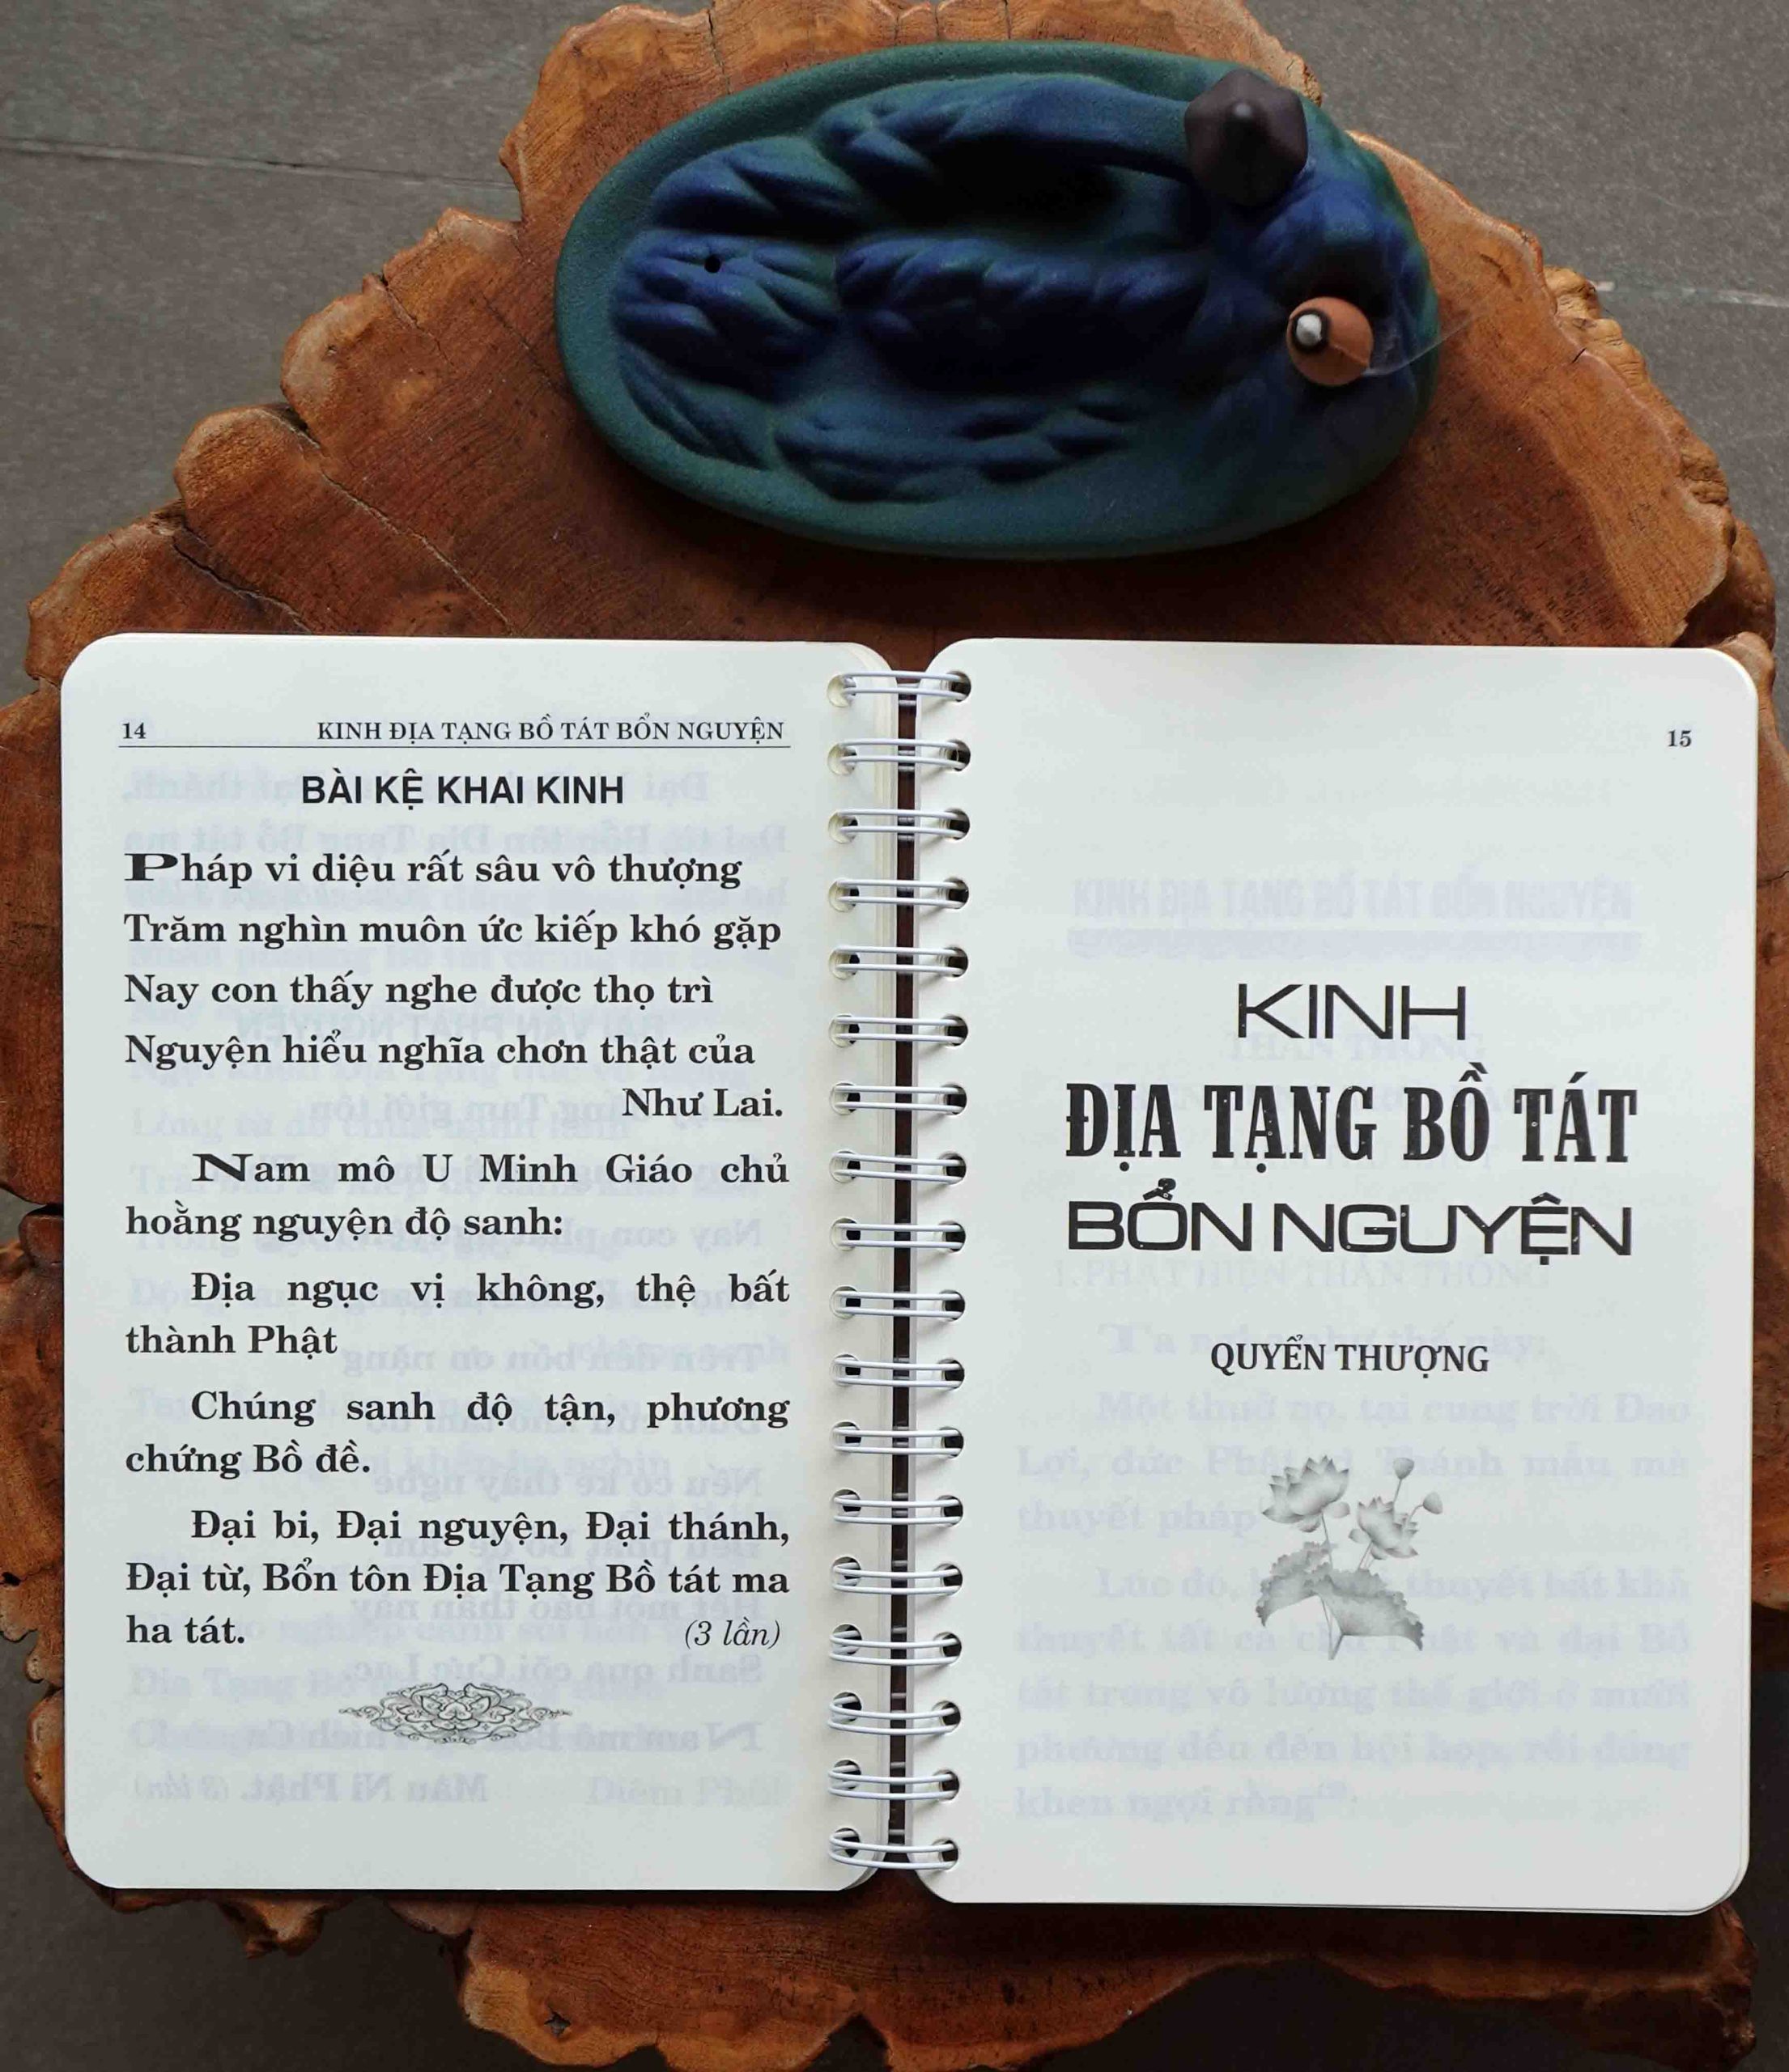 14 KINH ĐỊA TẠNG BỒ TÁT BỔN NGUYỆN
BÀI KỆ KHAI KINH
Pháp vi diệu rất sâu vô thượng
Trăm nghìn muôn ức kiếp khó gặp
Nay con thấy nghe được thọ trì
Nguyện hiểu nghĩa chơn thật của
Như Lai.
Nam mô U Minh Giáo chủ
hoằng nguyện độ sanh:
Địa ngục vị không, thệ bất
thành Phật
Chúng sanh độ tận, phương
chứng Bồ đề.
Đại bi, Đại nguyện, Đại thánh,
Đại từ, Bổn tôn Địa Tạng Bồ tát ma
ha tát. (3 lần)
15
KINH
ĐỊA TẠNG BỒ TÁT
BỔN NGUYỆN
QUYỂN THƯỢNG